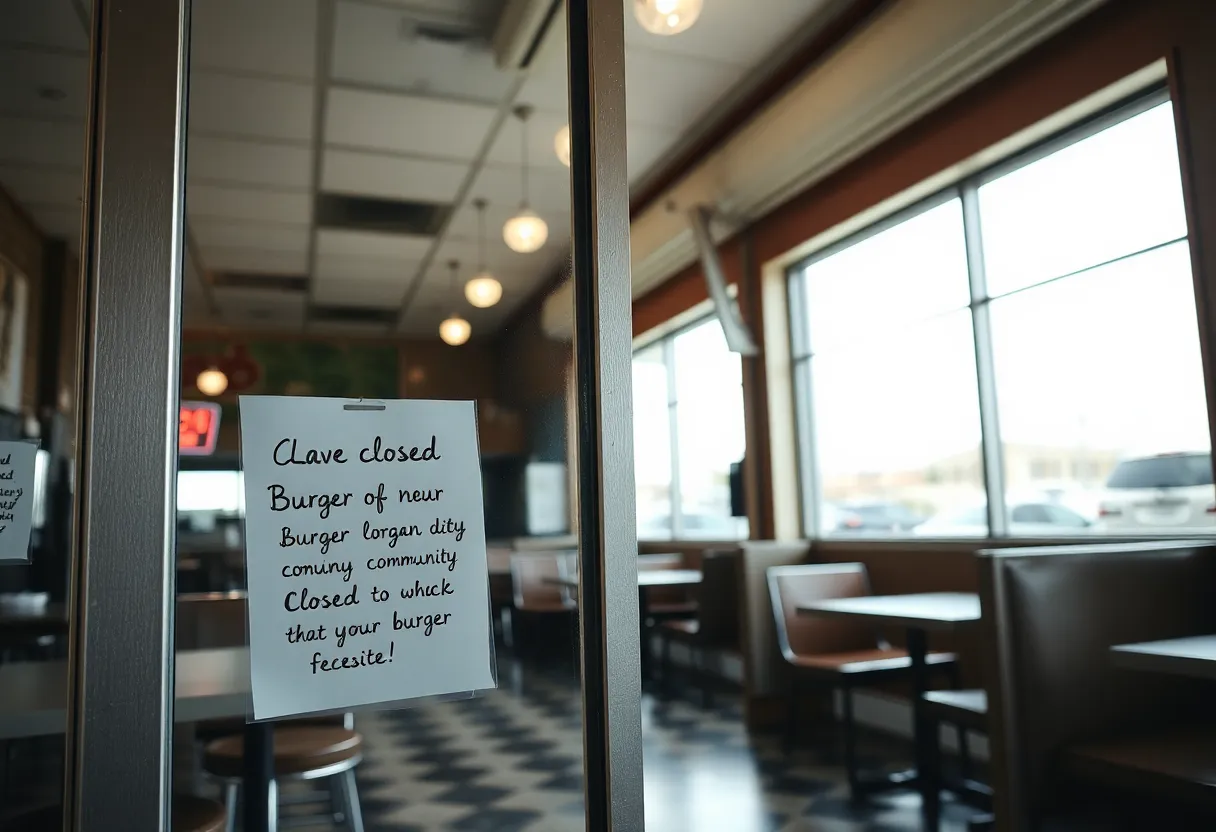 Clave closed
Burger of neur
Burger lorgan dity
conuny community
Closed to whuck
that your burger
fecesite!